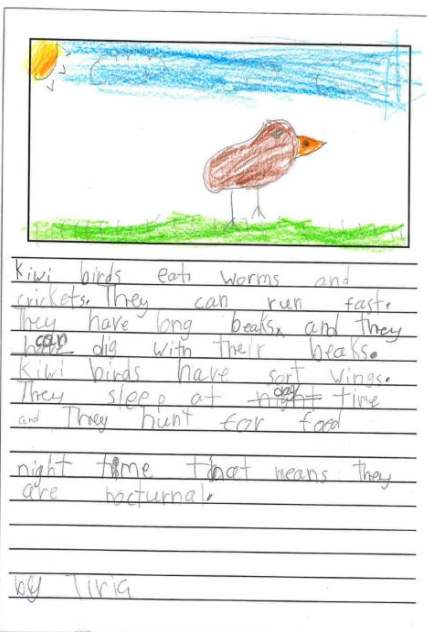 Kiwi birds eat worms and
crickets. They can run fast.
They have long beaks and they
can dig with their beaks.
Kiwi birds have sort wings.
They sleep at day time
and They hunt for food
night time that means they
are nocturnal.
by Tiria